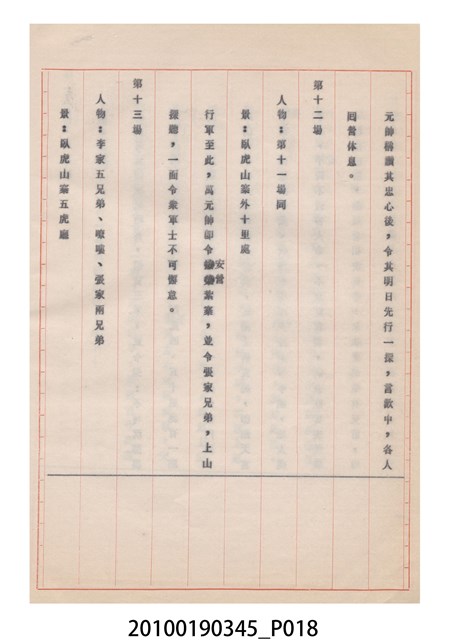 元帥稱讚其忠心後，令其明日先行一探，言歇中，各人
回營休息。
第十二場
人物：第十一場同
景：臥虎山寨外十里處
行軍至此，萬元帥即令安營紮寨，並令張家兄弟，上山
探聽，一面令眾軍士不可懈怠。
第十三場
人物：李家五兄弟、嘍囉、張家兩兄弟
景：臥虎山寨五虎廳
20100190345_P018